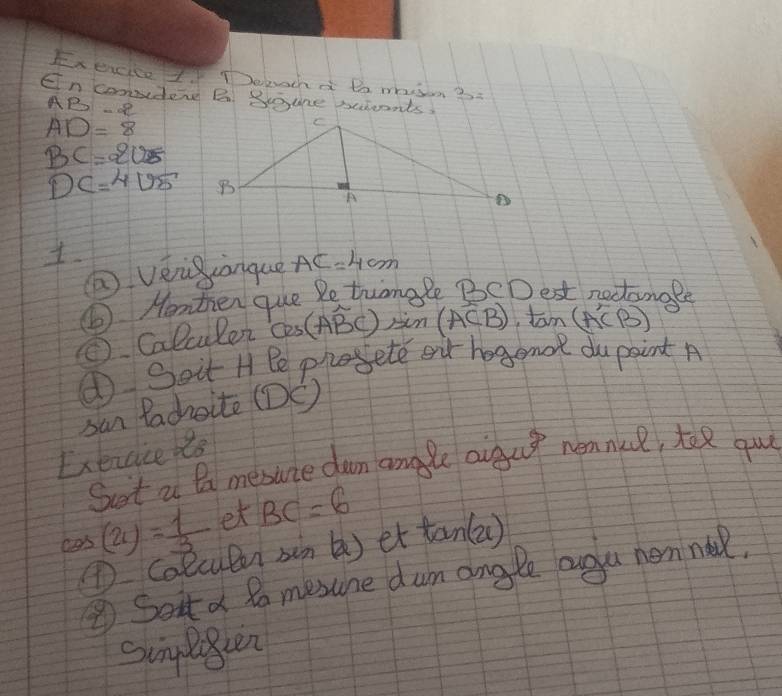 Exercice 1. Devoir à la maison 3:
En considère la figure suivants.
AB = 2
AD = 8
BC = 2√5
DC = 4√5
C
B
A
D
1.
(a) - Vérifianque AC = 4cm
(b) - Monther que le triangle BCD est rectangle
(c) - Calculer cos(AB̂C) sin (AĈB), tan (AĈB)
(d) - Soit H le projeté ort hogonal du point A
sur ladroite (DC)
Exercice 2:
Soit x la mesure dun angle aigus nonnul, tel que
cos(x) = 1/3 et BC = 6
(1) - Calculer sin (x) et tan(x)
(2) Soit α la mesure dun angle aigu non nul.
Simplifier